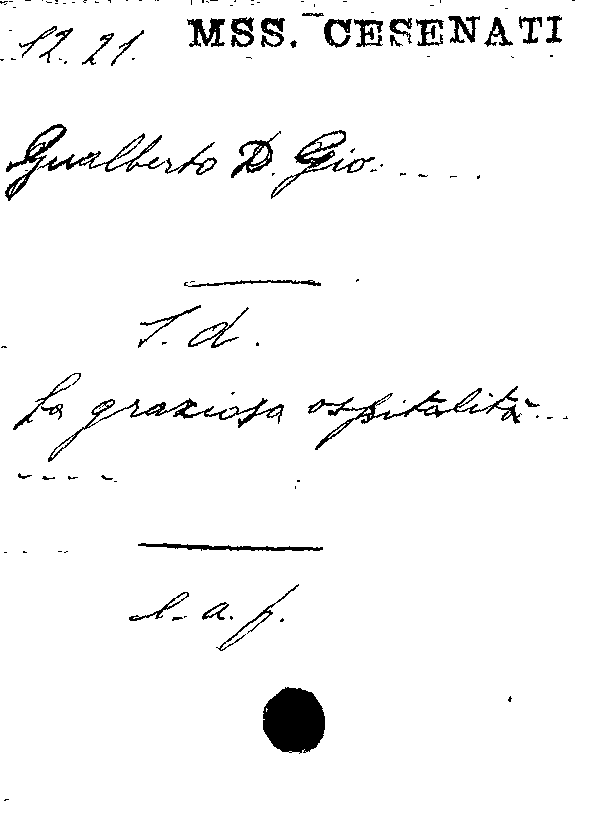 12.21. MSS. CESENATI
Gualberto D. Gio. . . . .
S. d.
La graziosa ospitalità . . .
- - - -
l. a. f.